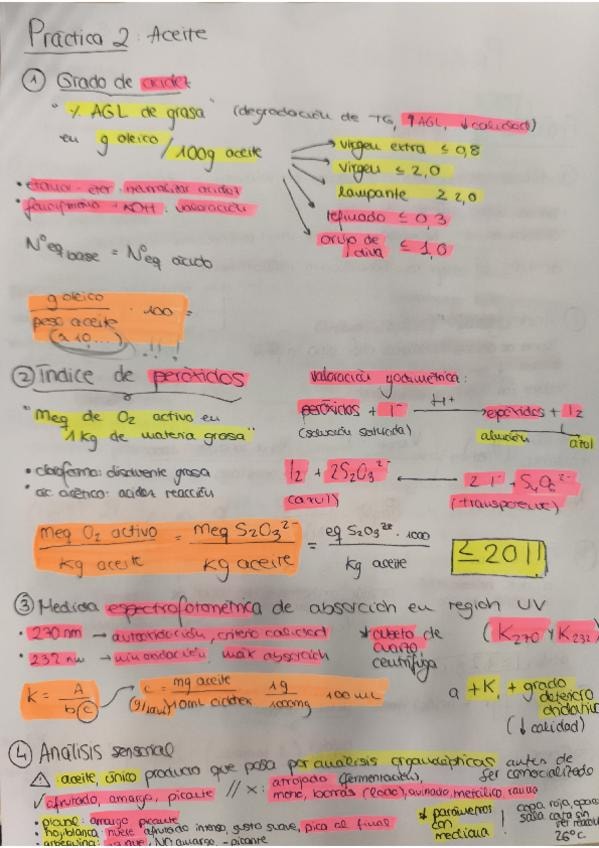 Práctica 2: Aceite
① Grado de acidez
"% AGL de grasa" (degradación de TG, ↑AGL, ↓calidad)
en g oleico/100g aceite
virgen extra ≤ 0,8
virgen ≤ 2,0
lampante ≥ 2,0
refinado ≤ 0,3
orujo de oliva ≤ 1,0
• etanol-éter: neutralizar acidez
• KOH: valoración
Nº eq base = Nº eq ácido
g oleico / peso aceite · 100 =
(≈ 10,...) !!!
② Índice de peróxidos
"Meq de O₂ activo en
1 Kg de materia grasa"
• cloroformo: disolvente grasa
• ác. acético: acidez reacción
valoración yodimétrica:
peróxidos + I⁻ H⁺ → + I₂
(solución saturada)
almidón azul
I₂ + 2S₂O₃²⁻ ⟷ 2I⁻ + S₄O₆²⁻
(azul) (transparente)
meq O₂ activo / Kg aceite = meq S₂O₃²⁻ / Kg aceite = eq S₂O₃²⁻ · 1000 / Kg aceite
≤ 20!!
③ Medida espectrofotométrica de absorción en región UV
• 270 nm → autooxidación, criterio calidad
• 232 nm → máx absorción
* cubeto de cuarzo
centrífuga
(K₂₇₀ y K₂₃₂)
K = A / b c
c = mg aceite / 10mL · 1g / 1000mg · 100 mL
(g/100mL)
a +K, + grado
deterioro
oxidativo
(↓ calidad)
④ Análisis sensorial
⚠: aceite, único producto que pasa por análisis organolépticas antes de
ser comercializado
✓ afrutado, amargo, picante // X: atrojado (fermentación),
borras, avinado, metálico, rancio
• picual: amargo picante
• hojiblanca: afrutado intenso, gusto suave, pica al final
• arbequina: NO amargo, -picante
* parámetros
con
mediana!
copa roja,
sala cata sin
26ºC